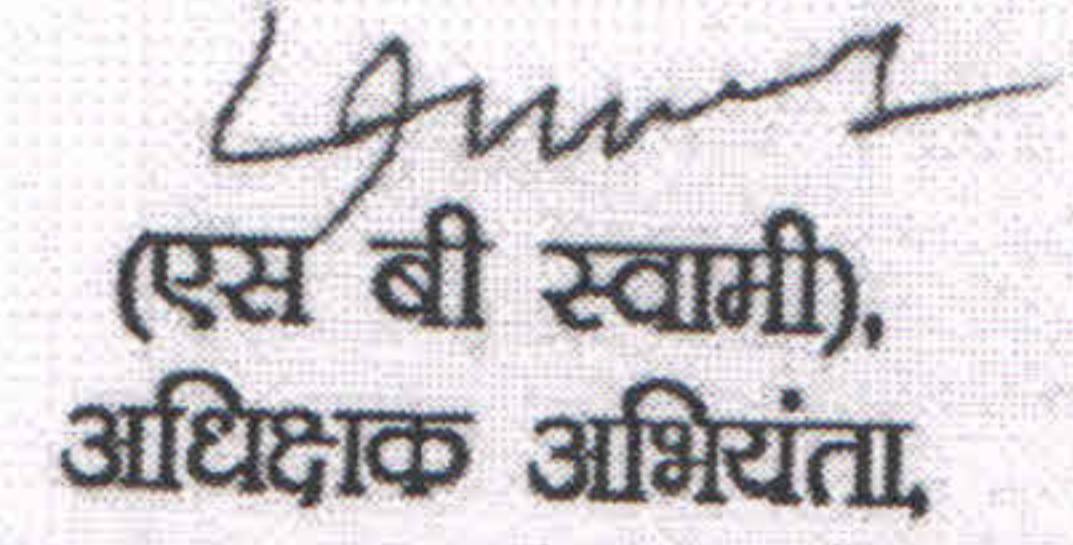 (एस बी स्वामी),
अधिक्षक अभियंता,